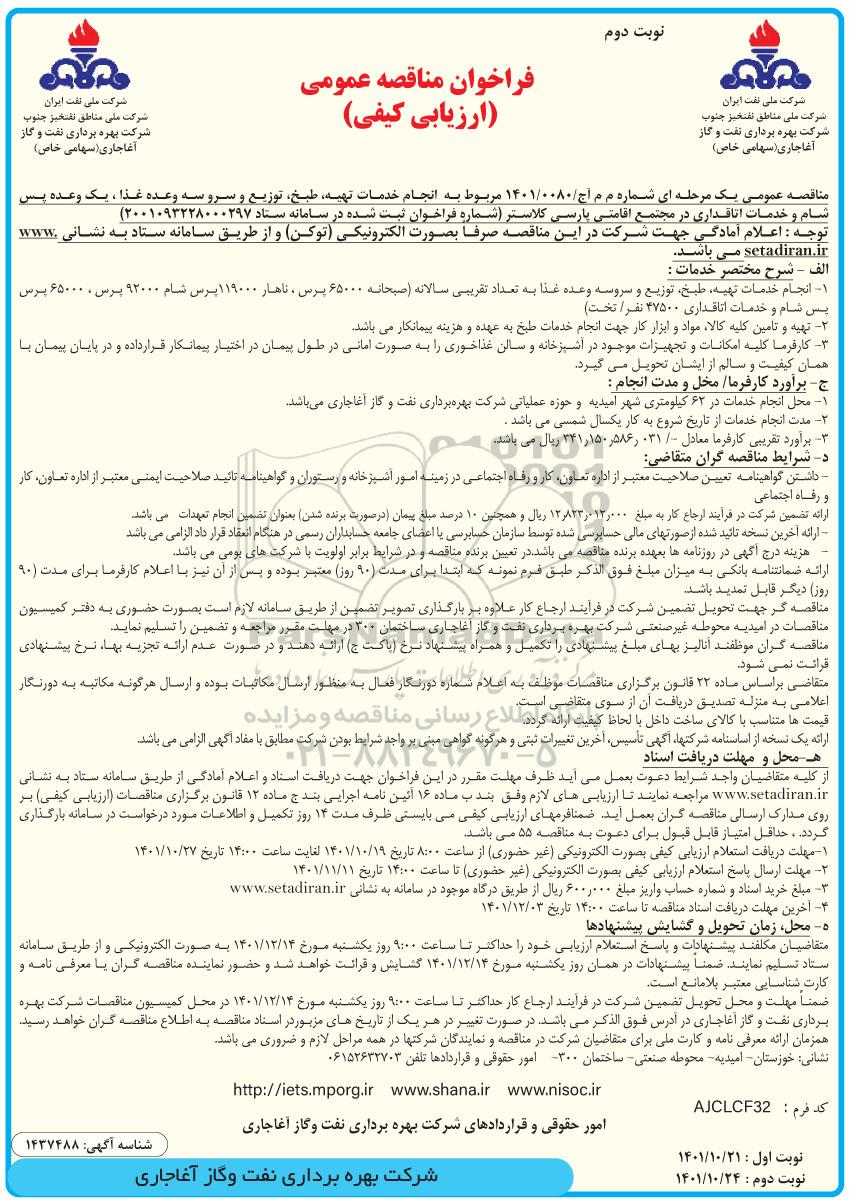 نوبت دوم
فراخوان مناقصه عمومی
(ارزیابی کیفی)
شرکت ملی نفت ایران
شرکت ملی مناطق نفتخیز جنوب
شرکت بهره برداری نفت و گاز
آغاجاری(سهامی خاص)
شرکت ملی نفت ایران
شرکت ملی مناطق نفتخیز جنوب
شرکت بهره برداری نفت و گاز
آغاجاری(سهامی خاص)
مناقصه عمومی یک مرحله ای شماره م م آج/۱۴۰۱/۰۰۸۰ مربوط به انجام خدمات تهیه، طبخ، توزیع و سرو سه وعده غذا ، یک وعده پس
شام و خدمات اتاقداری در مجتمع اقامتی پارسی کلاستر (شماره فراخوان ثبت شده در سامانه ستاد ۲۰۰۱۰۹۳۲۲۸۰۰۰۲۹۷)
توجه : اعلام آمادگی جهت شرکت در این مناقصه صرفا بصورت الکترونیکی (توکن) و از طریق سامانه ستاد به نشانی www.
setadiran.ir می باشد.
الف - شرح مختصر خدمات :
۱- انجام خدمات تهیه، طبخ، توزیع و سروسه وعده غذا به تعداد تقریبی سالانه (صبحانه ۶۵۰۰۰ پرس ، ناهار ۱۱۹۰۰۰پرس شام ۹۲۰۰۰ پرس ، ۶۵۰۰۰ پرس
پس شام و خدمات اتاقداری ۴۷۵۰۰ نفر/ تخت)
۲- تهیه و تامین کلیه کالا، مواد و ابزار کار جهت انجام خدمات طبخ به عهده و هزینه پیمانکار می باشد.
۳- کارفرما کلیه امکانات و تجهیزات موجود در آشپزخانه و سالن غذاخوری را به صورت امانی در طول پیمان در اختیار پیمانکار قرارداده و در پایان پیمان با
همان کیفیت و سالم از ایشان تحویل می گیرد.
ج- برآورد کارفرما/ مخل و مدت انجام :
۱- محل انجام خدمات در ۶۲ کیلومتری شهر امیدیه و حوزه عملیاتی شرکت بهره‌برداری نفت و گاز آغاجاری می‌باشد.
۲- مدت انجام خدمات از تاریخ شروع به کار یکسال شمسی می باشد .
۳- برآورد تقریبی کارفرما معادل -/ ۰۳۱ر۵۸۶ر۱۵۰ر۳۴۱ ریال می باشد.
د- شرایط مناقصه گران متقاضی:
- داشتن گواهینامه تعیین صلاحیت معتبر از اداره تعاون، کار و رفاه اجتماعی در زمینه امور آشپزخانه و رستوران و گواهینامه تائید صلاحیت ایمنی معتبر از اداره تعاون، کار
و رفاه اجتماعی
ارائه تضمین شرکت در فرآیند ارجاع کار به مبلغ ۱۲٫۸۲۳٫۰۱۲٫۰۰۰ ریال و همچنین ۱۰ درصد مبلغ پیمان (درصورت برنده شدن) بعنوان تضمین انجام تعهدات می باشد.
- ارائه آخرین نسخه تائید شده ازصورتهای مالی حسابرسی شده توسط سازمان حسابرسی یا اعضای جامعه حسابداران رسمی در هنگام انعقاد قرار داد الزامی می باشد
- هزینه درج آگهی در روزنامه ها بعهده برنده مناقصه می باشد.در تعیین برنده مناقصه و در شرایط برابر اولویت با شرکت های بومی می باشد.
ارائه ضمانتنامه بانکی به میزان مبلغ فوق الذکر طبق فرم نمونه که ابتدا برای مدت (۹۰ روز) معتبر بوده و پس از آن نیز با اعلام کارفرما برای مدت (۹۰
روز) دیگر قابل تمدید باشد.
مناقصه گر جهت تحویل تضمین شرکت در فرآیند ارجاع کار علاوه بر بارگذاری تصویر تضمین از طریق سامانه لازم است بصورت حضوری به دفتر کمیسیون
مناقصات در امیدیه محوطه غیرصنعتی شرکت بهره برداری نفت و گاز آغاجاری ساختمان ۳۰۰ در مهلت مقرر مراجعه و تضمین را تسلیم نماید.
مناقصه گران موظفند آنالیز بهای مبلغ پیشنهادی را تکمیل و همراه پیشنهاد نرخ (پاکت ج) ارائه دهند و در صورت عدم ارائه تجزیه بها، نرخ پیشنهادی
قرائت نمی شود.
متقاضی براساس ماده ۲۲ قانون برگزاری مناقصات موظف به اعلام شماره دورنگار فعال به منظور ارسال مکاتبات بوده و ارسال هرگونه مکاتبه به دورنگار
اعلامی به منزله تصدیق دریافت آن از سوی متقاضی است.
قیمت ها متناسب با کالای ساخت داخل با لحاظ کیفیت ارائه گردد.
ارائه یک نسخه از اساسنامه شرکتها، آگهی تأسیس، آخرین تغییرات ثبتی و هرگونه گواهی مبنی بر واجد شرایط بودن شرکت مطابق با مفاد آگهی الزامی می باشد.
هـ-محل و مهلت دریافت اسناد
از کلیه متقاضیان واجد شرایط دعوت بعمل می آید ظرف مهلت مقرر در این فراخوان جهت دریافت اسناد و اعلام آمادگی از طریق سامانه ستاد به نشانی
www.setadiran.ir مراجعه نمایند تا ارزیابی های لازم وفق بند ب ماده ۱۶ آئین نامه اجرایی بند ج ماده ۱۲ قانون برگزاری مناقصات (ارزیابی کیفی) بر
روی مدارک ارسالی مناقصه گران بعمل آید. ضمنافرمهای ارزیابی کیفی می بایستی ظرف مدت ۱۴ روز تکمیل و اطلاعات مورد درخواست در سامانه بارگذاری
گردد. ، حداقل امتیاز قابل قبول برای دعوت به مناقصه ۵۵ می باشد.
۱-مهلت دریافت استعلام ارزیابی کیفی بصورت الکترونیکی (غیر حضوری) از ساعت ۸:۰۰ تاریخ ۱۴۰۱/۱۰/۱۹ لغایت ساعت ۱۴:۰۰ تاریخ ۱۴۰۱/۱۰/۲۷
۲- مهلت ارسال پاسخ استعلام ارزیابی کیفی بصورت الکترونیکی (غیر حضوری) تا ساعت ۱۴:۰۰ تاریخ ۱۴۰۱/۱۱/۱۱
۳- مبلغ خرید اسناد و شماره حساب واریز مبلغ ۶۰۰٫۰۰۰ ریال از طریق درگاه موجود در سامانه به نشانی www.setadiran.ir
۴- آخرین مهلت دریافت اسناد مناقصه تا ساعت ۱۴:۰۰ تاریخ ۱۴۰۱/۱۲/۰۳
ه- محل، زمان تحویل و گشایش پیشنهادها
متقاضیان مکلفند پیشنهادات و پاسخ استعلام ارزیابی خود را حداکثر تا ساعت ۹:۰۰ روز یکشنبه مورخ ۱۴۰۱/۱۲/۱۴ به صورت الکترونیکی و از طریق سامانه
ستاد تسلیم نمایند. ضمناً پیشنهادات در همان روز یکشنبه مورخ ۱۴۰۱/۱۲/۱۴ گشایش و قرائت خواهد شد و حضور نماینده مناقصه گران یا معرفی نامه و
کارت شناسایی معتبر بلامانع است.
ضمناً مهلت و محل تحویل تضمین شرکت در فرآیند ارجاع کار حداکثر تا ساعت ۹:۰۰ روز یکشنبه مورخ ۱۴۰۱/۱۲/۱۴ در محل کمیسیون مناقصات شرکت بهره
برداری نفت و گاز آغاجاری در آدرس فوق الذکر می باشد. در صورت تغییر در هر یک از تاریخ های مزبوردر اسناد مناقصه به اطلاع مناقصه گران خواهد رسید.
همزمان ارائه معرفی نامه و کارت ملی برای متقاضیان شرکت در مناقصه و نمایندگان شرکتها در همه مراحل لازم و ضروری می باشد.
نشانی: خوزستان- امیدیه- محوطه صنعتی- ساختمان ۳۰۰- امور حقوقی و قراردادها تلفن ۰۶۱۵۲۶۳۲۷۰۳
http://iets.mporg.ir www.shana.ir www.nisoc.ir
کد فرم : AJCLCF32
امور حقوقی و قراردادهای شرکت بهره برداری نفت وگاز آغاجاری
شناسه آگهی: ۱۴۳۷۴۸۸
نوبت اول : ۱۴۰۱/۱۰/۲۱
نوبت دوم : ۱۴۰۱/۱۰/۲۴
شرکت بهره برداری نفت وگاز آغاجاری
ParsNamadData
پایگاه اطلاع رسانی مناقصه و مزایده
۰۲۱-۸۸۳۴۹۶۷۰-۵